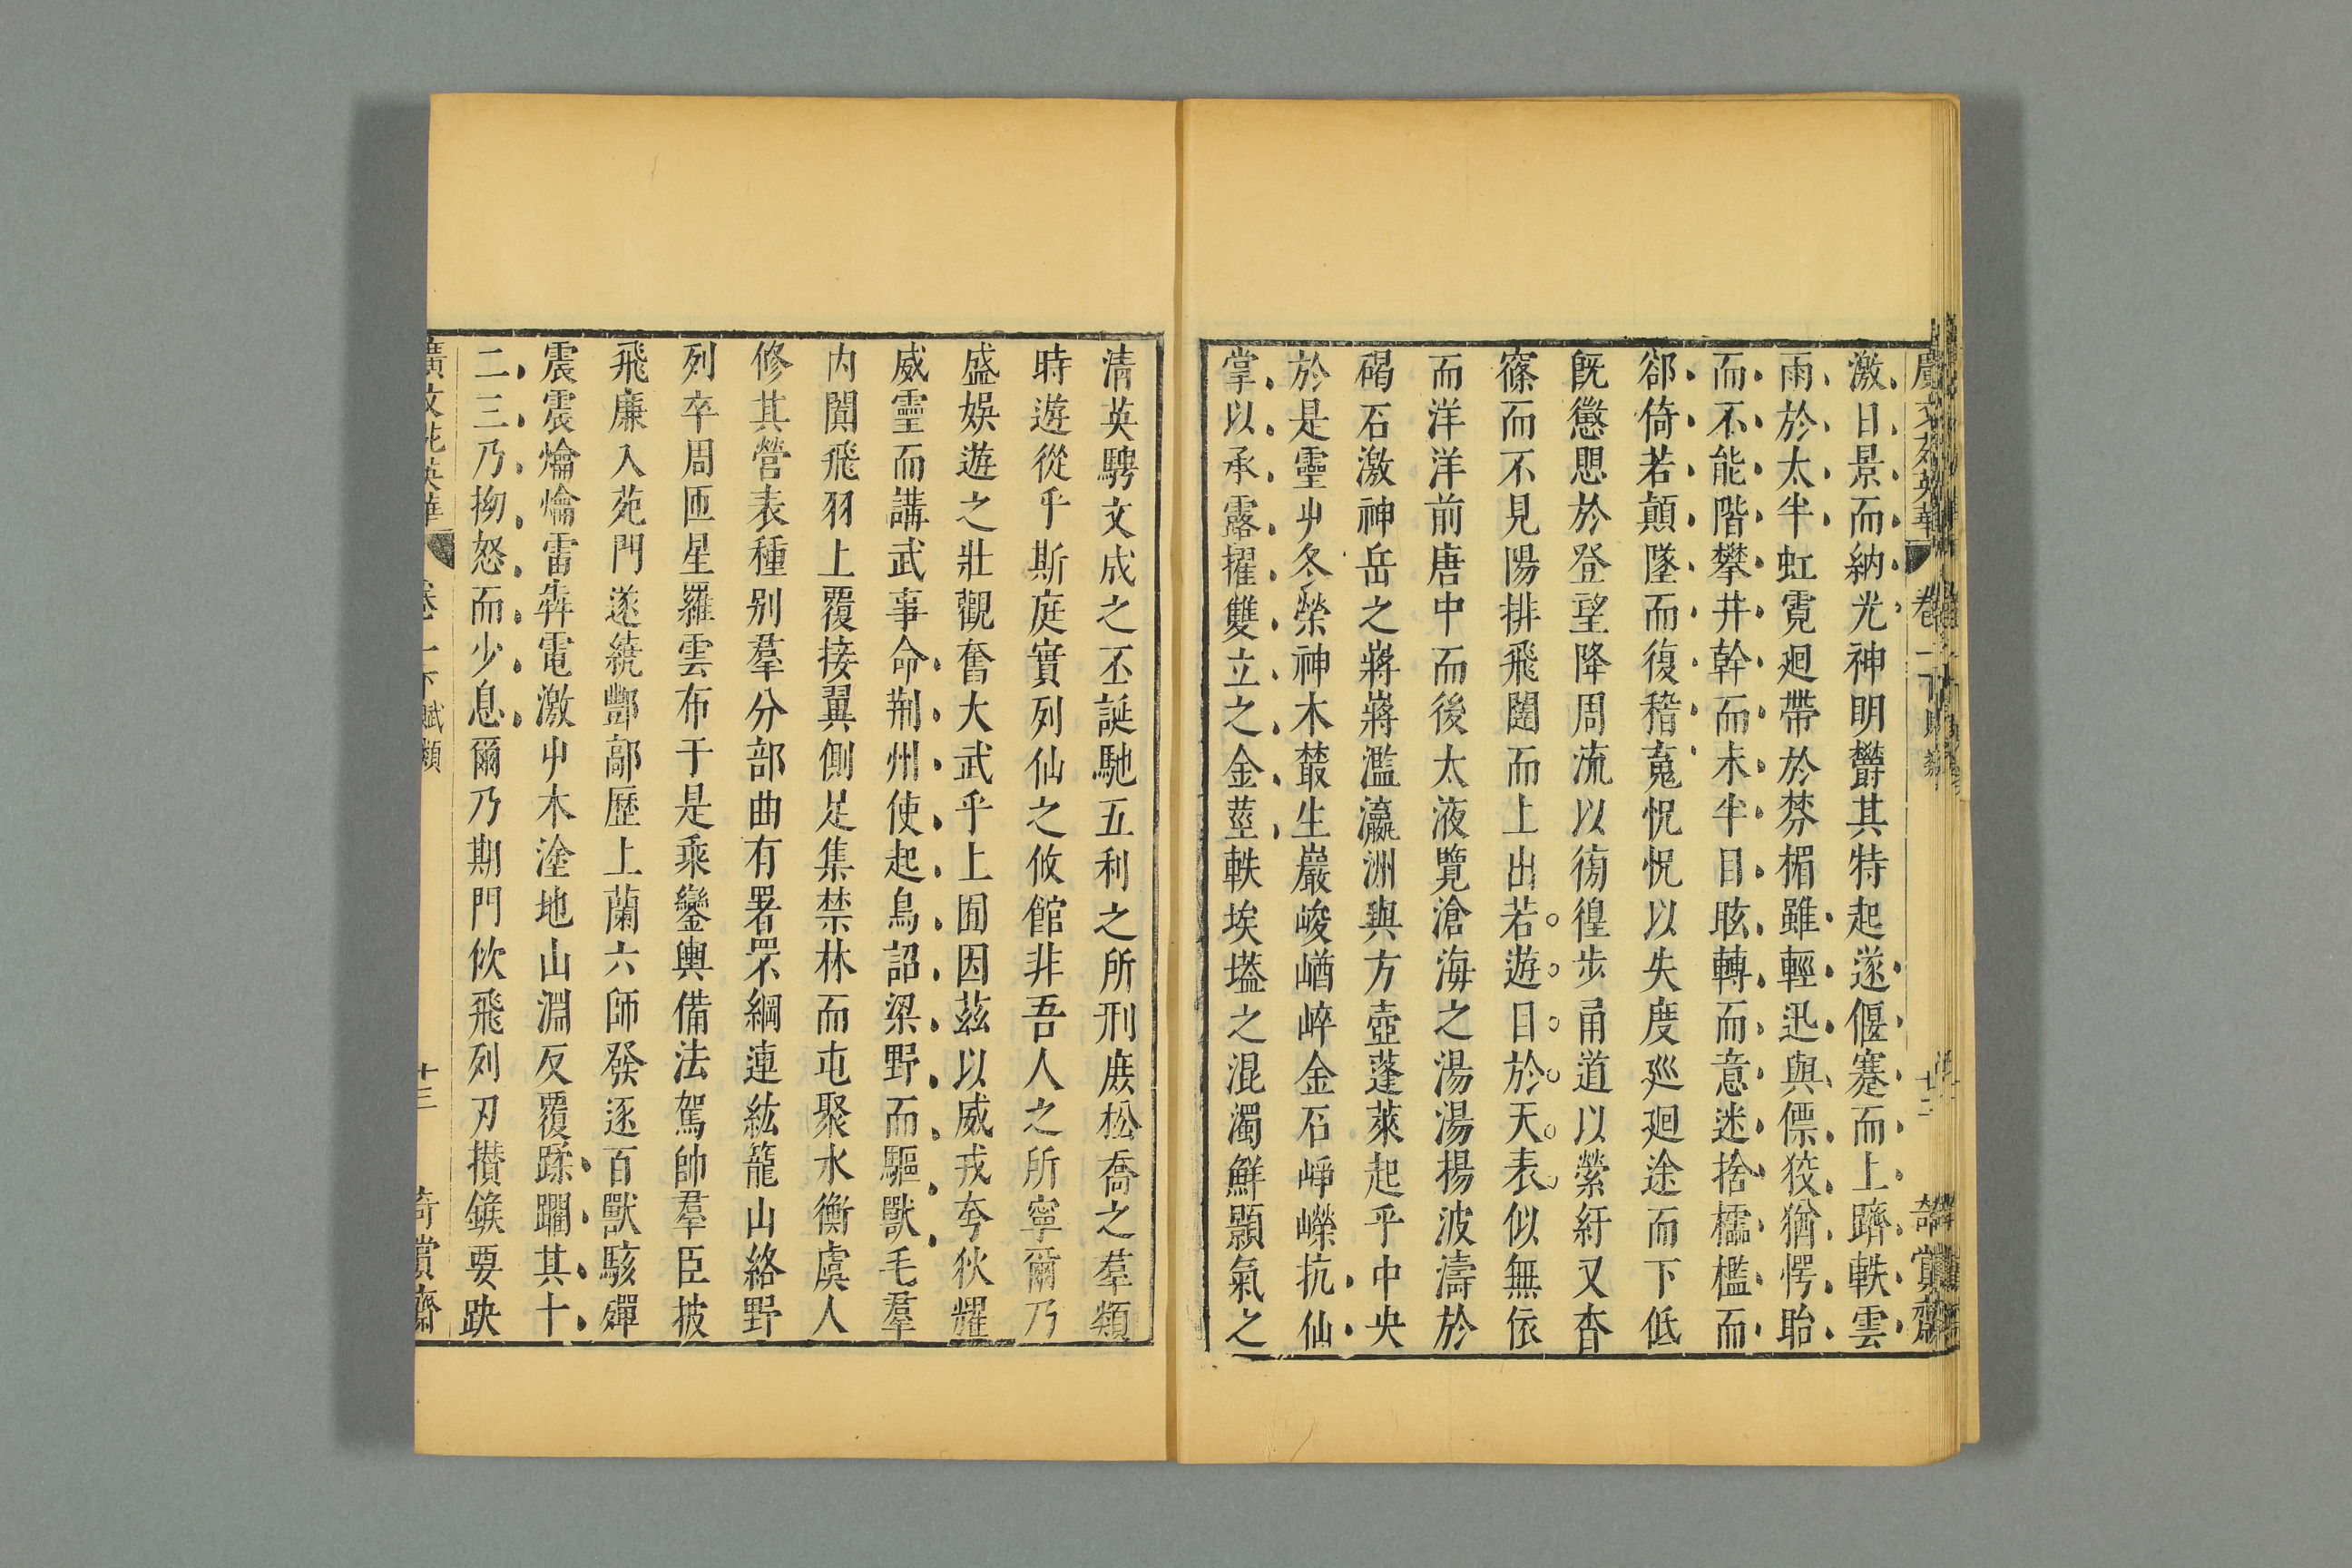 廣文苑英華 卷一下 賦類 十二 奇賞齋
激日景而納光神明欝其特起遂偃蹇而上躋軼雲
雨於太半虹霓廻帶於棼楣雖輕迅與僄狡猶愕眙
而不能階攀井幹而未半目眩轉而意迷捨櫺檻而
郤倚若顛墜而復稽䰟怳怳以失度廵廻途而下低
旣懲愳於登望降周流以徬徨步甬道以縈紆又杳
窱而不見陽排飛闥而上出若遊目於天表似無依
而洋洋前唐中而後太液覽滄海之湯湯揚波濤於
碣石激神岳之嶈嶈濫瀛洲與方壺蓬萊起乎中央
於是靈屮冬榮神木叢生巖峻崷崪金石崢嶸抗仙
掌以承露擢雙立之金莖軼埃壒之混濁鮮顥氣之
清英騁文成之丕誕馳五利之所刑庶松喬之羣類
時遊從乎斯庭實列仙之攸館非吾人之所寧爾乃
盛娛遊之壯觀奮大武乎上囿因茲以威戎夸狄耀
威靈而講武事命荆州使起鳥詔梁野而驅獸毛羣
內闐飛羽上覆接翼側足集禁林而屯聚水衡虞人
修其營表種别羣分部曲有署罘綱連紘籠山絡野
列卒周匝星羅雲布于是乘鑾輿備法駕帥羣臣披
飛廉入苑門遂繞酆鄗歷上蘭六師發逐百獸駭殫
震震爚爚雷犇電激屮木塗地山淵反覆蹂躪其十
二三乃拗怒而少息爾乃期門佽飛列刃攢鍭要趹
廣文苑英華 卷一下 賦類 十三 奇賞齋